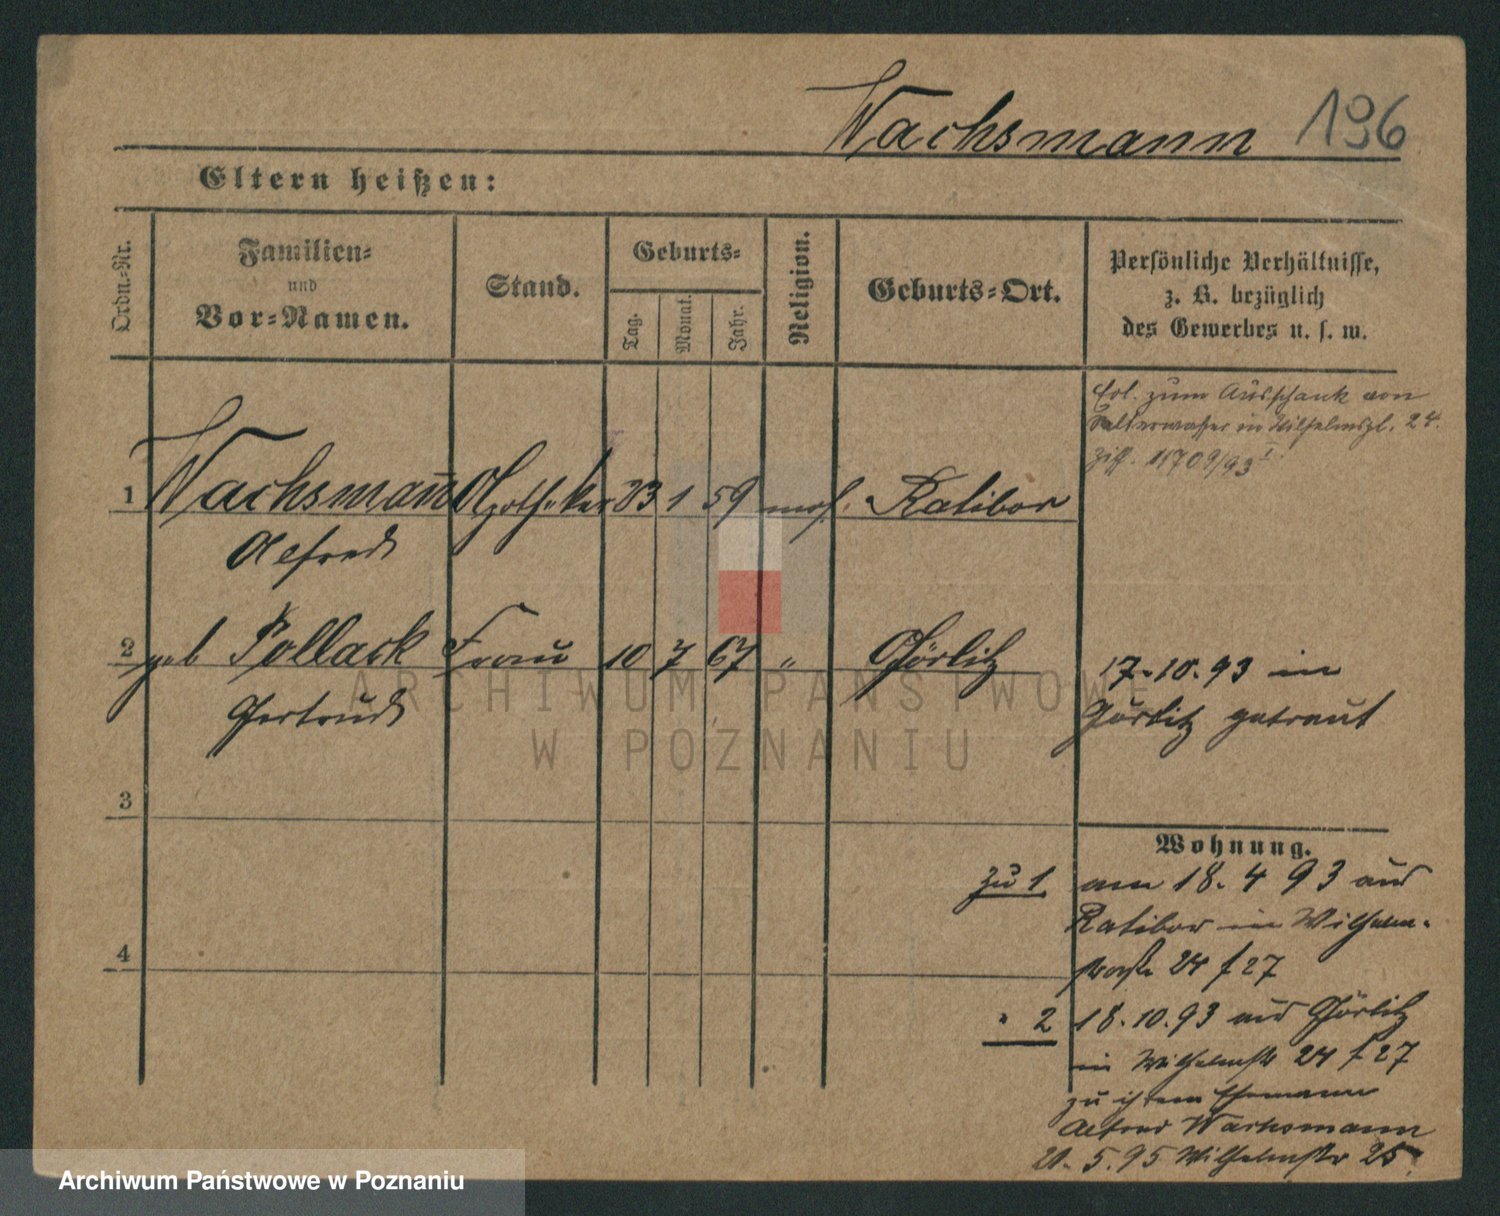 Wachsmann 196
Eltern heißen:
Ordn.-Nr.
Familien-
und
Vor-Namen.
Stand.
Geburts-
Tag.
Monat.
Jahr.
Religion.
Geburts-Ort.
Persönliche Verhältnisse,
z. B. bezüglich
des Gewerbes u. s. w.
Erl. zum Ausschank von
Selterwasser in Wilhelmspl. 24.
11709/93 I
1 Wachsmann Apotheker 23 1 59 mos. Ratibor
Alfred
2 geb Pollack Frau 10 7 67 " Görlitz
Gertrud
17.10.93 in
Görlitz getraut
3
Wohnung.
zu 1 am 18. 4 93 aus
Ratibor in Wilhelm-
straße 24 f 27
4
" 2 18.10.93 aus Görlitz
in Wilhelmstr 24 f 27
zu ihrem Ehemann
Alfred Wachsmann
21. 5. 95 Wilhelmstr 25.
ARCHIWUM PAŃSTWOWE
W POZNANIU
Archiwum Państwowe w Poznaniu